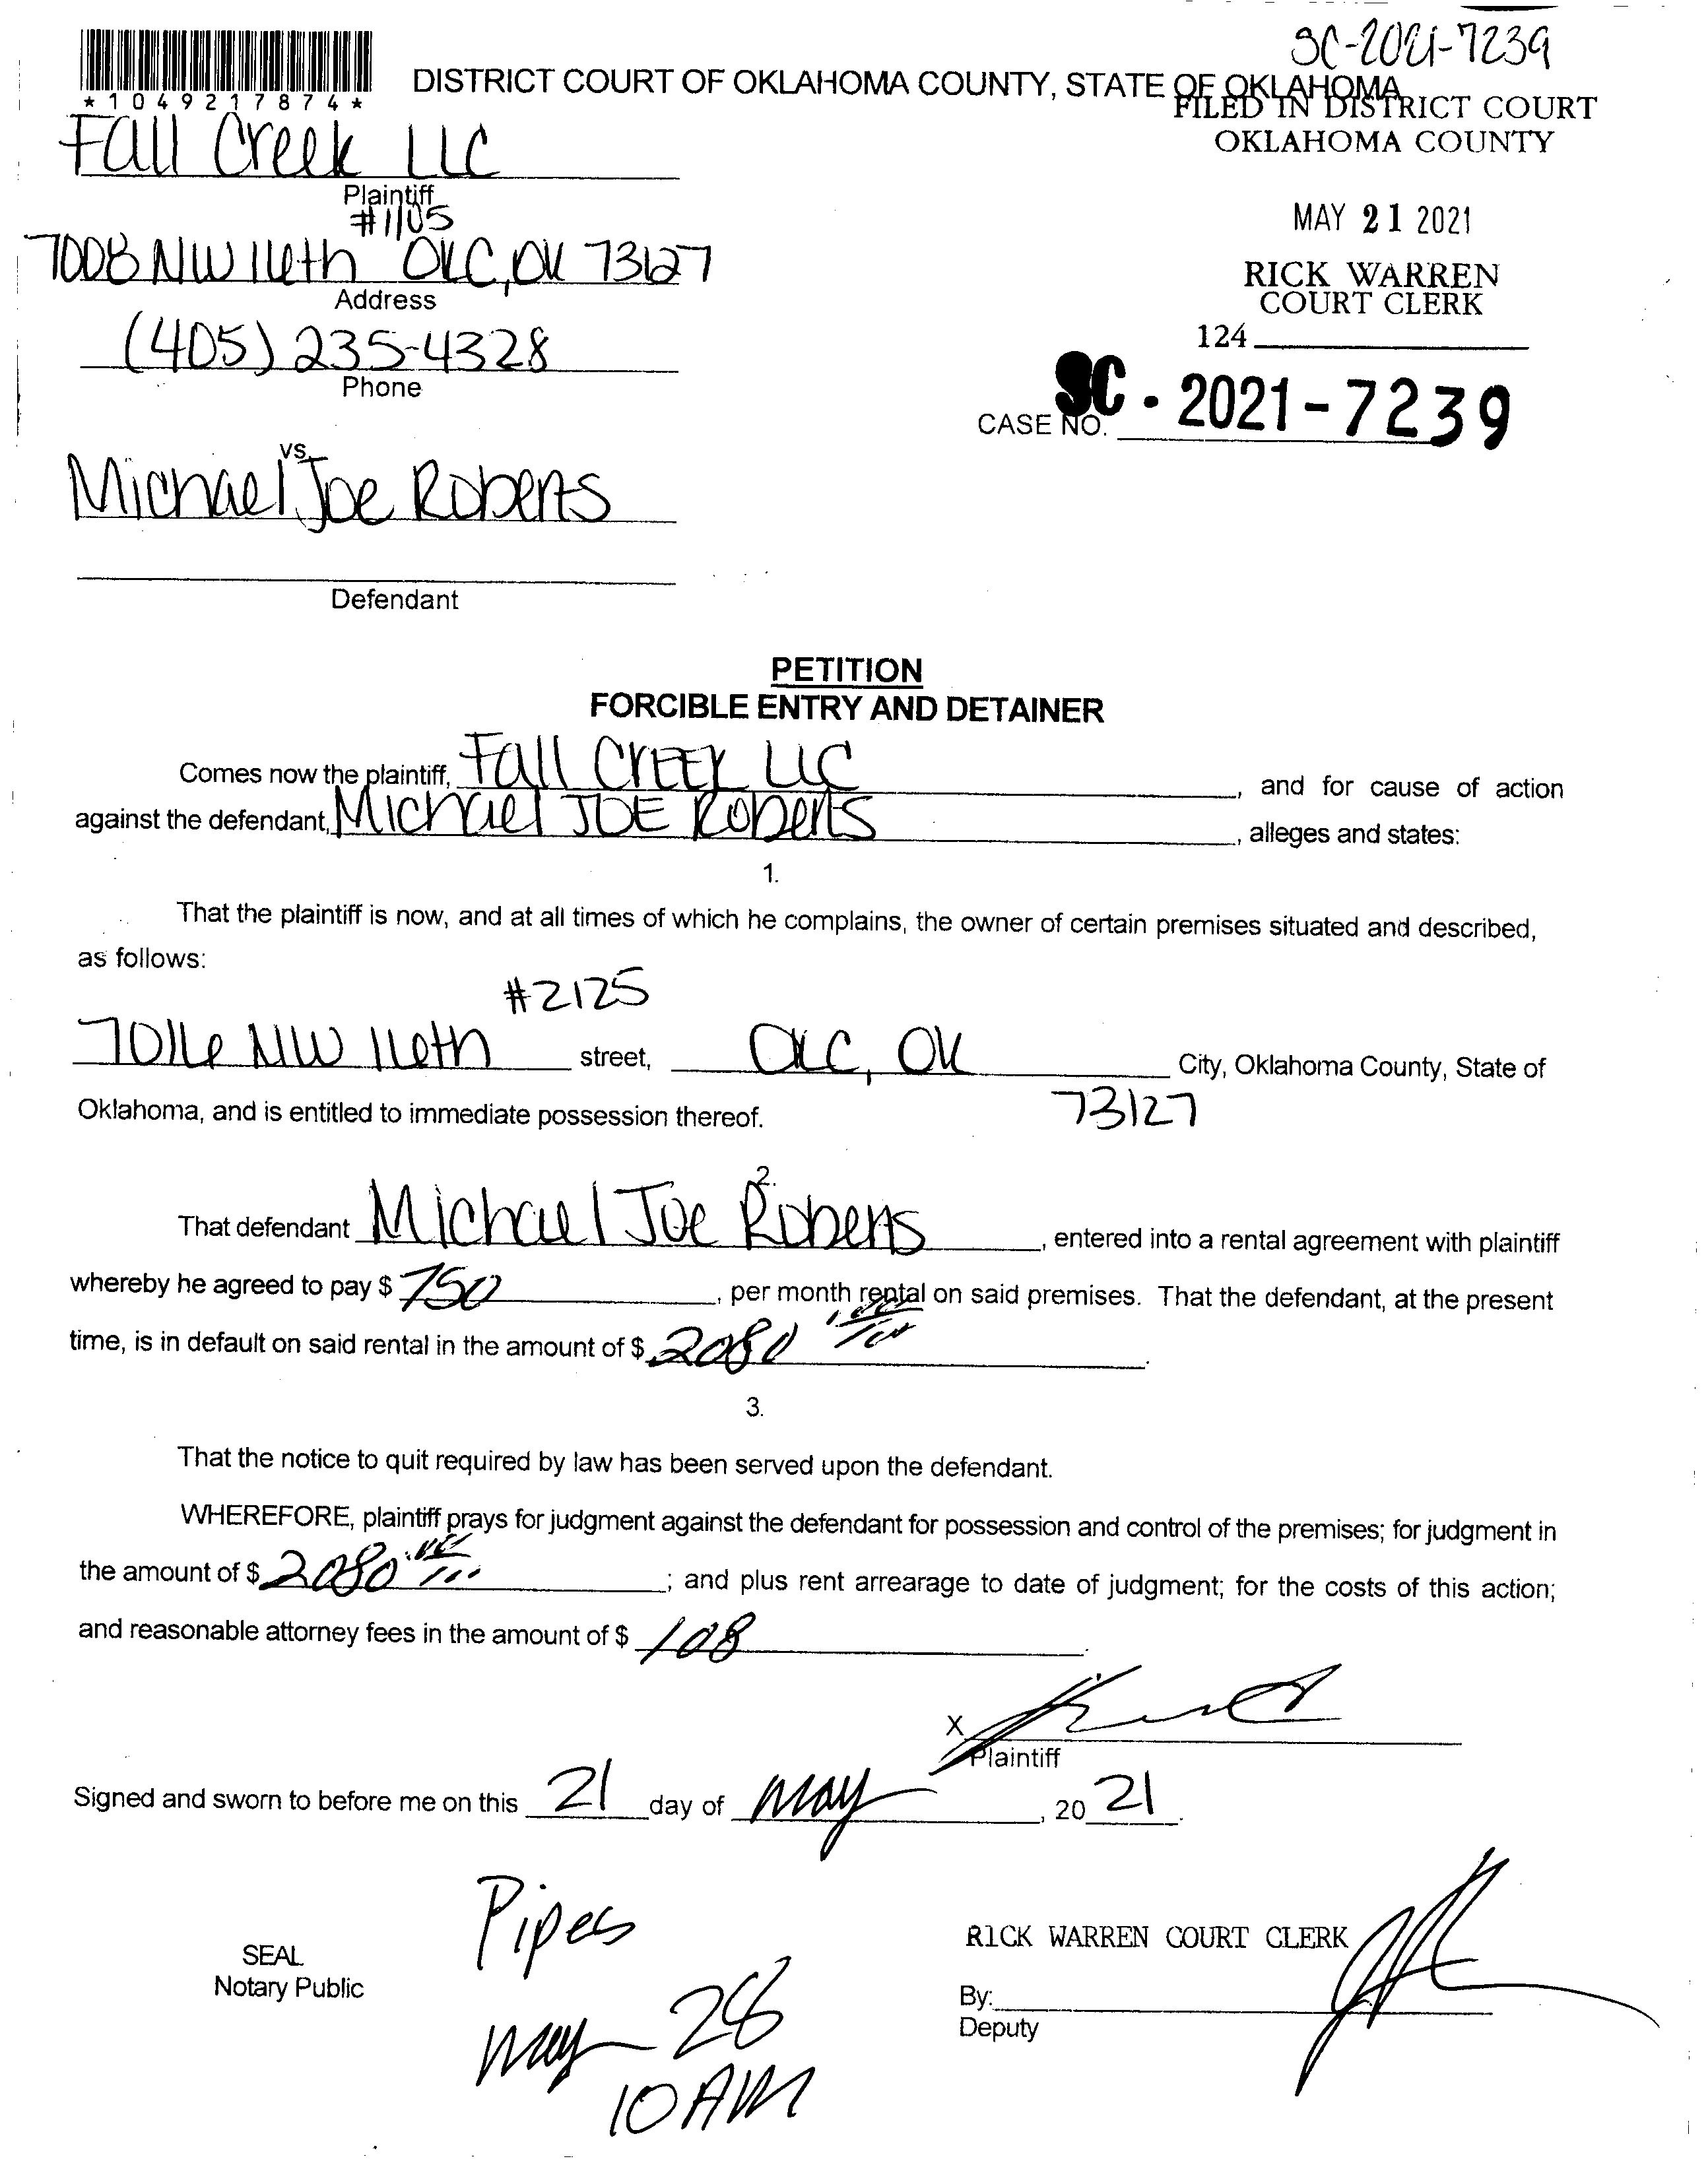 SC-2021-7239
*1049217874*
DISTRICT COURT OF OKLAHOMA COUNTY, STATE OF OKLAHOMA
FILED IN DISTRICT COURT
OKLAHOMA COUNTY
Fall Creek LLC
Plaintiff
#1105
MAY 21 2021
7008 NW 16th OKC, OK 73127
Address
RICK WARREN
COURT CLERK
(405) 235-4328
Phone
124
CASE NO. SC - 2021-7239
vs.
Michael Joe Roberts
Defendant
PETITION
FORCIBLE ENTRY AND DETAINER
Comes now the plaintiff, Fall Creek LLC, and for cause of action
against the defendant, Michael Joe Roberts, alleges and states:
1.
That the plaintiff is now, and at all times of which he complains, the owner of certain premises situated and described,
as follows:
#2125
7016 NW 16th street, OKC, OK City, Oklahoma County, State of
73127
Oklahoma, and is entitled to immediate possession thereof.
2.
That defendant Michael Joe Roberts, entered into a rental agreement with plaintiff
whereby he agreed to pay $ 750, per month rental on said premises. That the defendant, at the present
time, is in default on said rental in the amount of $ 2080.
3.
That the notice to quit required by law has been served upon the defendant.
WHEREFORE, plaintiff prays for judgment against the defendant for possession and control of the premises; for judgment in
the amount of $ 2080; and plus rent arrearage to date of judgment; for the costs of this action;
and reasonable attorney fees in the amount of $ 108.
X
Plaintiff
Signed and sworn to before me on this 21 day of May, 20 21.
Pipes
May 28
10 AM
SEAL
Notary Public
RICK WARREN COURT CLERK
By:
Deputy